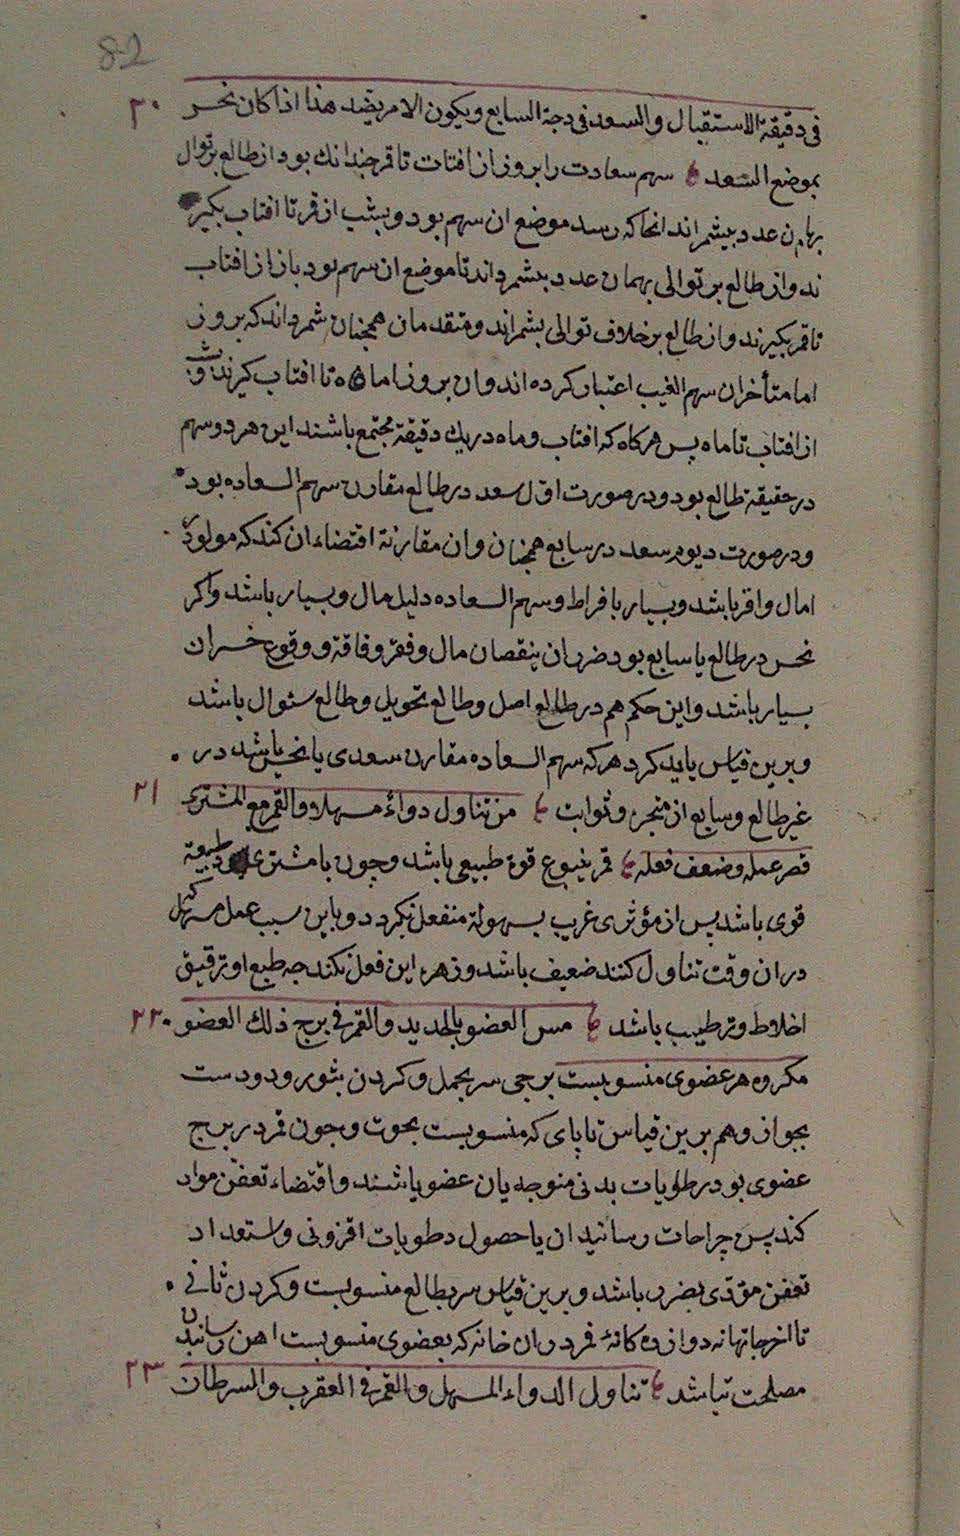 82
فی دقیقة الاستقبال والسعد فی درجة السابع ویکون الامر بضد هذا اذا کان نحس ٢٠
بموضع السعد سهم سعادت را بروز از افتاب تا قمر چندانك بود از طالع بر توالی
بهان عدد بیشمراند انجا که رسد موضع ان سهم بود و بشب از قمر تا افتاب بگیر
ند و از طالع بر توالی بهمان عدد بیشمرداند تا موضع ان سهم بود باز از افتاب
تا قمر بگیرند و از طالع بر خلاف توالی بشمراند و متقدمان همچنان شمرداند که بروز
اما متأخران سهم الغیب اعتبار کرده اند و ان بروز اما ماه تا افتاب گیرند و بشب
از افتاب تا ماه پس هرکاه که افتاب و ماه در یك دقیقة مجتمع باشند این هر دو سهم
در حقیقة طالع بود و در صورت اول سعد در طالع مقارن سهم السعاده بود
و در صورت دیوم سعد در سابع همچنان و ان مقارنة اقتضاء ان کند که مولود را
امال وافر باشد و بسیار بافراط و سهم السعاده دلیل مال و بسیار باشد و اکر
نحس در طالع یا سابع بود ضر ان بنقصان مال و فقر و فاقة و وقوع خسران
بسیار باشد و این حکم هم در طالع اصل و طالع تحویل و طالع سئوال باشد
و برین قیاس باید کرد هر که سهم السعاده مقارن سعدی یا نحس باشد در
غیر طالع و سابع از منجره و ثوابت من تناول دواء مسهلا والقمر مع المشتری ٢١
قصر عمله وضعف فعله قمر ینبوع قوة طبیعی باشد و چون با مشتری طبیعة
قوی باشد پس از مؤثری غریب بسهولة منفعل نکردد و باین سبب عمل مسهل که
در ان وقت تناول کنند ضعیف باشد و زهره این فعل نکند چه طبع او ترقیق
اخلاط و ترطیب باشد مس العضو بالحدید والقمر فی برج ذلك العضو ٢٢
مکروه هر عضوی منسوبست ببرجی سر بحمل و کردن بثور و دو دست
بجوزا و هم برین قیاس تا پای که منسوبست بحوت و چون قمر در برج
عضوی بود رطوبات بدنی متوجه بان عضو باشند و اقتضاء تعفن مواد
کند پس جراحات رسانیدن با حصول رطوبات افزونی و استعداد
تعفن مؤدی بضرر باشد و برین قیاس سر بطالع منسوبست و کردن بثانی
تا اخر خانهاء دوازده کانه قمر در ان خانه که بعضوی منسوبست اهن رسانیدن
مصلحت نباشد تناول الدواء المسهل والقمر فی العقرب والسرطان ٢٣